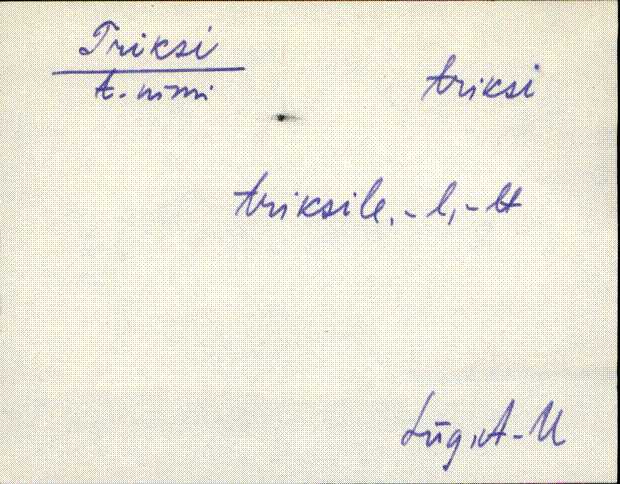 Triksi
t. nimi
triksi
triksile, -l, -lt
Lüg, A-U